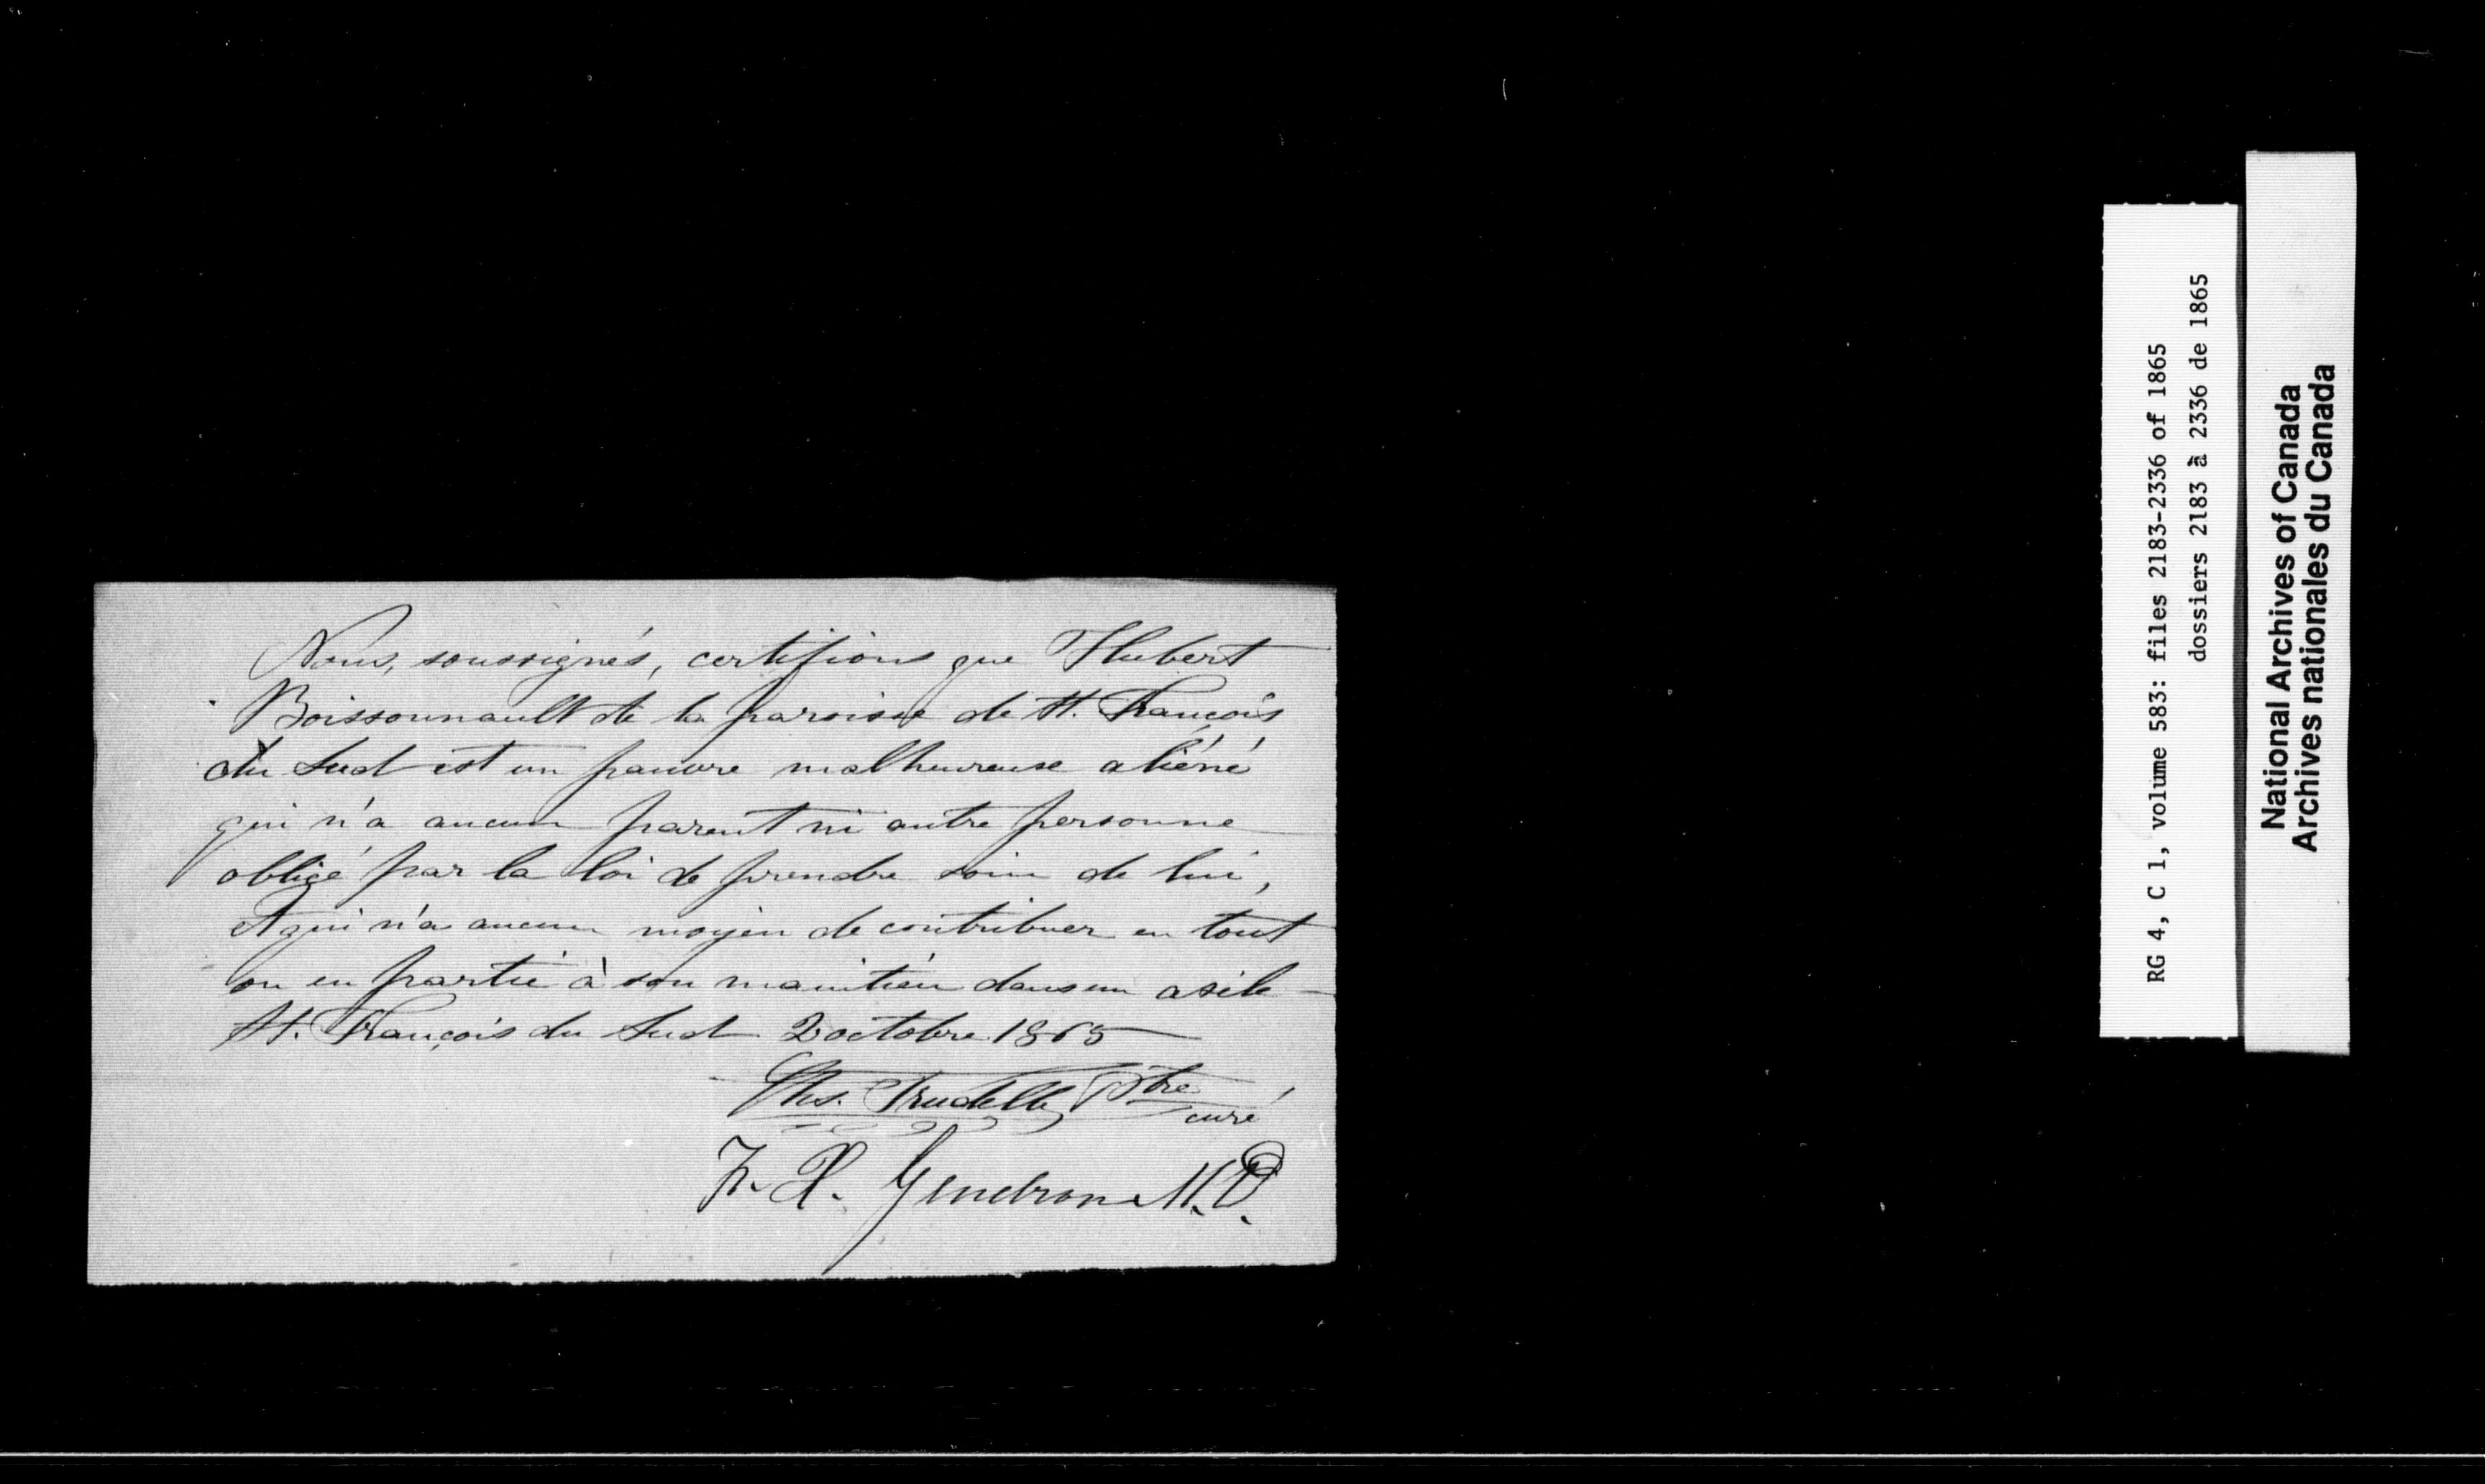 Nous, soussignés, certifions que Hubert
Boissonnault de la paroisse de St. François
du Sud est un pauvre malheureuse aliéné
qui n'a aucun parent ni autre personne
obligé par la loi de prendre soin de lui,
et qui n'a aucun moyen de contribuer en tout
ou en partie à son maintien dans un asile —
St. François du Sud 2 octobre 1865 —
Chs. Trudelle Ptre
curé
F. X. Gendron M.D.
RG 4, C 1, volume 583: files 2183-2336 of 1865
dossiers 2183 à 2336 de 1865
National Archives of Canada
Archives nationales du Canada